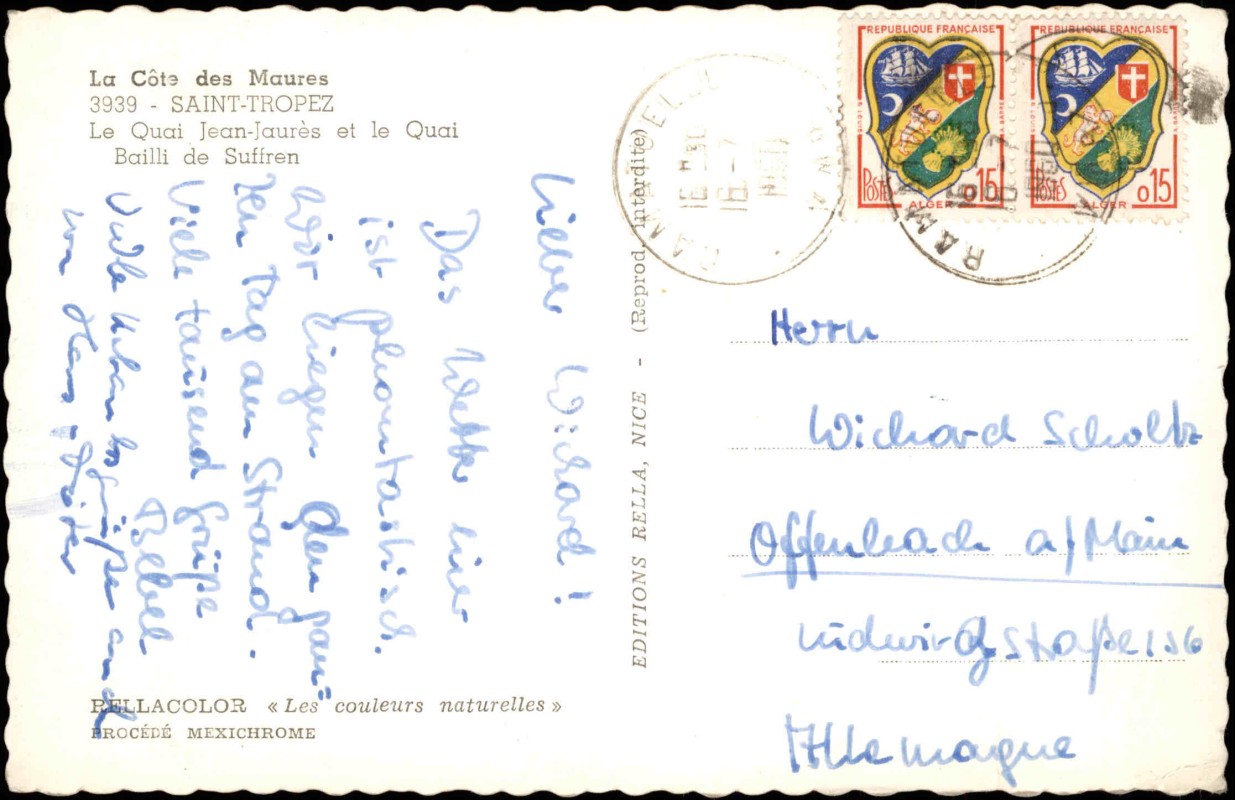 La Côte des Maures
3939 - SAINT-TROPEZ
Le Quai Jean-Jaurès et le Quai
Bailli de Suffren
Lieber Wichard!
Das Wetter hier
ist phantastisch.
Wir liegen den gan-
zen Tag am Strand.
Viele tausend Grüße
Bärbel
Viele Urlaubsgrüße auch
von Hans-Dieter
RELLACOLOR « Les couleurs naturelles »
PROCÉDÉ MEXICHROME
EDITIONS RELLA, NICE - (Reprod. interdite)
RAMATUELLE
16 H 30
18 -7
1960
VAR
REPUBLIQUE FRANÇAISE
POSTES 0,15
ALGER
REPUBLIQUE FRANÇAISE
POSTES 0,15
ALGER
Herrn
Wichard Scholtz
Offenbach a/Main
Ludwigstraße 156
Allemagne